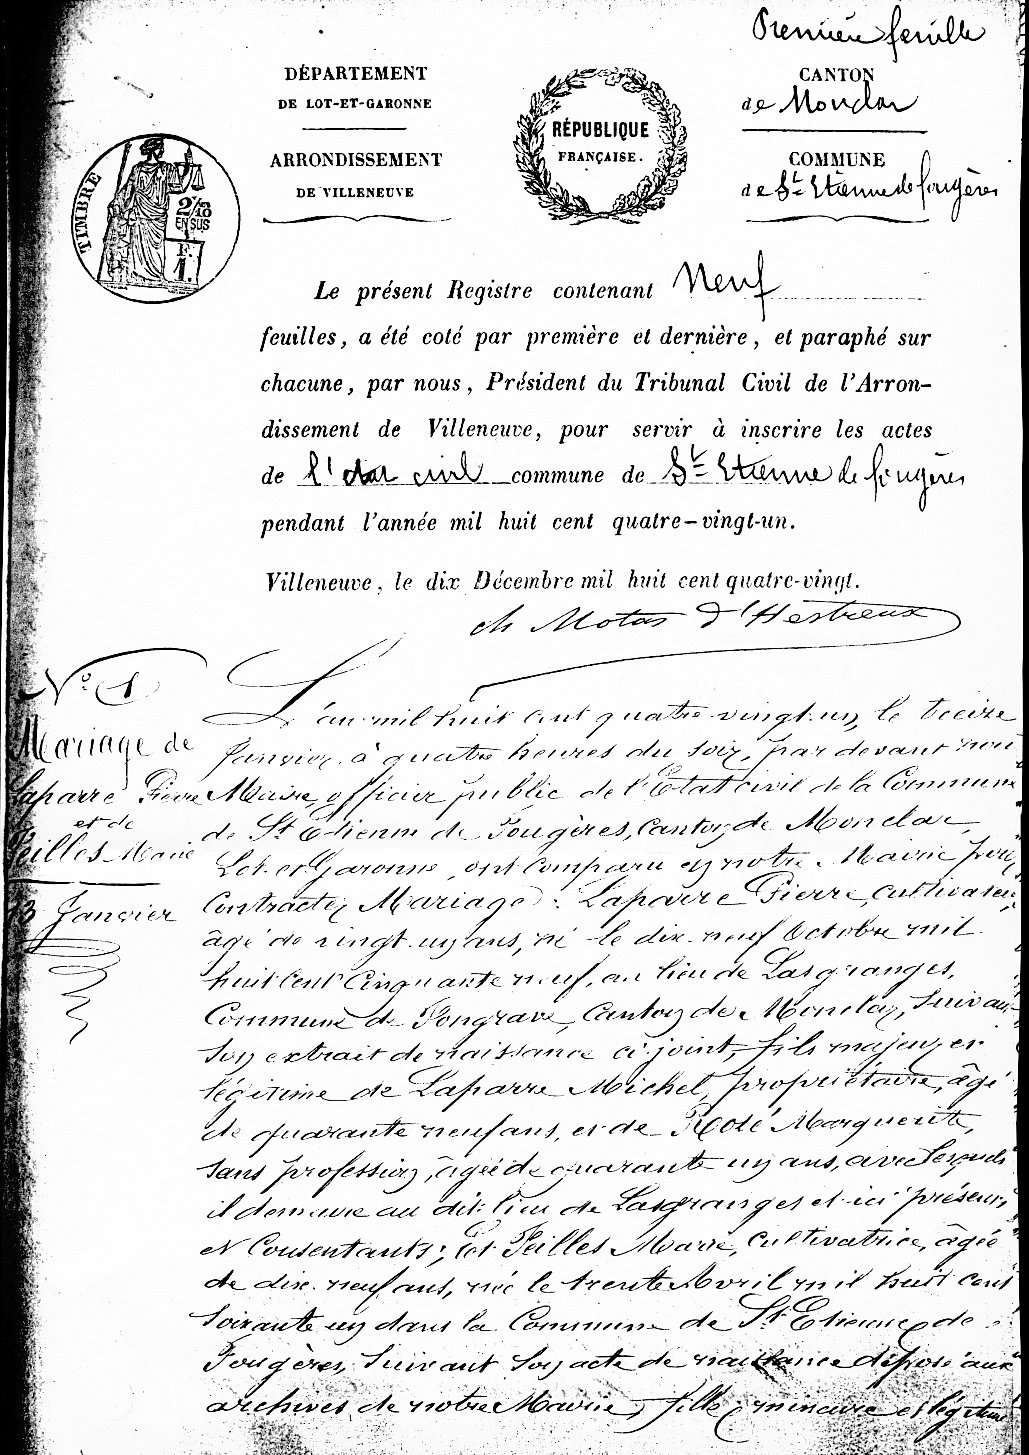 Première feuille
DÉPARTEMENT
DE LOT-ET-GARONNE
ARRONDISSEMENT
DE VILLENEUVE
RÉPUBLIQUE
FRANÇAISE.
CANTON
de Monclar
COMMUNE
de St Etienne de fougères
TIMBRE
2/10
EN SUS
F.
1.
Le présent Registre contenant Neuf
feuilles, a été coté par première et dernière, et paraphé sur
chacune, par nous, Président du Tribunal Civil de l'Arron-
dissement de Villeneuve, pour servir à inscrire les actes
de l'état civil commune de St Etienne de fougères
pendant l'année mil huit cent quatre-vingt-un.
Villeneuve, le dix Décembre mil huit cent quatre-vingt.
ch Motas d'Hestreux
N° 1
Mariage de
Laparre Pierre
et de
Peilles Marie
13 Janvier
L'an mil huit cent quatre-vingt-un, le treize
Janvier à quatre heures du soir, par devant nous
Maire, officier public de l'Etat civil de la Commune
de St Etienne de Fougères, Canton de Monclar,
Lot et Garonne, ont comparu en notre Mairie pour
contracter Mariage : Laparre Pierre, cultivateur,
âgé de vingt-un ans, né le dix-neuf Octobre mil
huit cent cinquante neuf, au lieu de Lasgranges,
Commune de Fongrave, Canton de Monclar, suivant
son extrait de naissance ci-joint, fils majeur et
légitime de Laparre Michel, propriétaire, âgé
de quarante neuf ans, et de Rosé Marguerite,
sans profession, âgée de quarante un ans, avec lesquels
il demeure au dit lieu de Lasgranges et ici présents
et Consentants; Et Peilles Marie, cultivatrice, âgée
de dix-neuf ans, née le trente Avril mil huit cent
soixante un dans la Commune de St Etienne de
Fougères, suivant son acte de naissance déposé aux
archives de notre Mairie, fille mineure et légitime